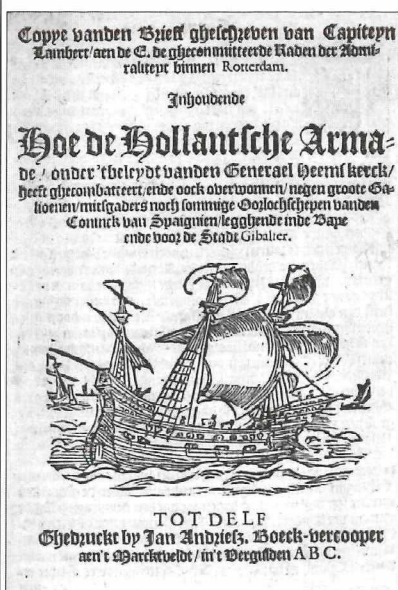 Copye vanden Brieff gheschreven van Capiteyn
Lambert/aen de E. de ghecommitteerde Raden der Admi-
raliteyt binnen Rotterdam.
Inhoudende
Hoe de Hollantsche Arma-
de / onder 'tbeleydt vanden Generael Heemskerck/
heeft ghecombatteert/ende oock overwonnen/negen groote Ga-
lioenen/mitsgaders noch sommige Oorlochschepen vanden
Coninck van Spaignien/legghende inde Baye
ende voor de Stadt Gibalter.
TOT DELF
Ghedruckt by Jan Andriesz. Boeck-vercooper
aen't Marcktveldt/in't Vergulden A B C.